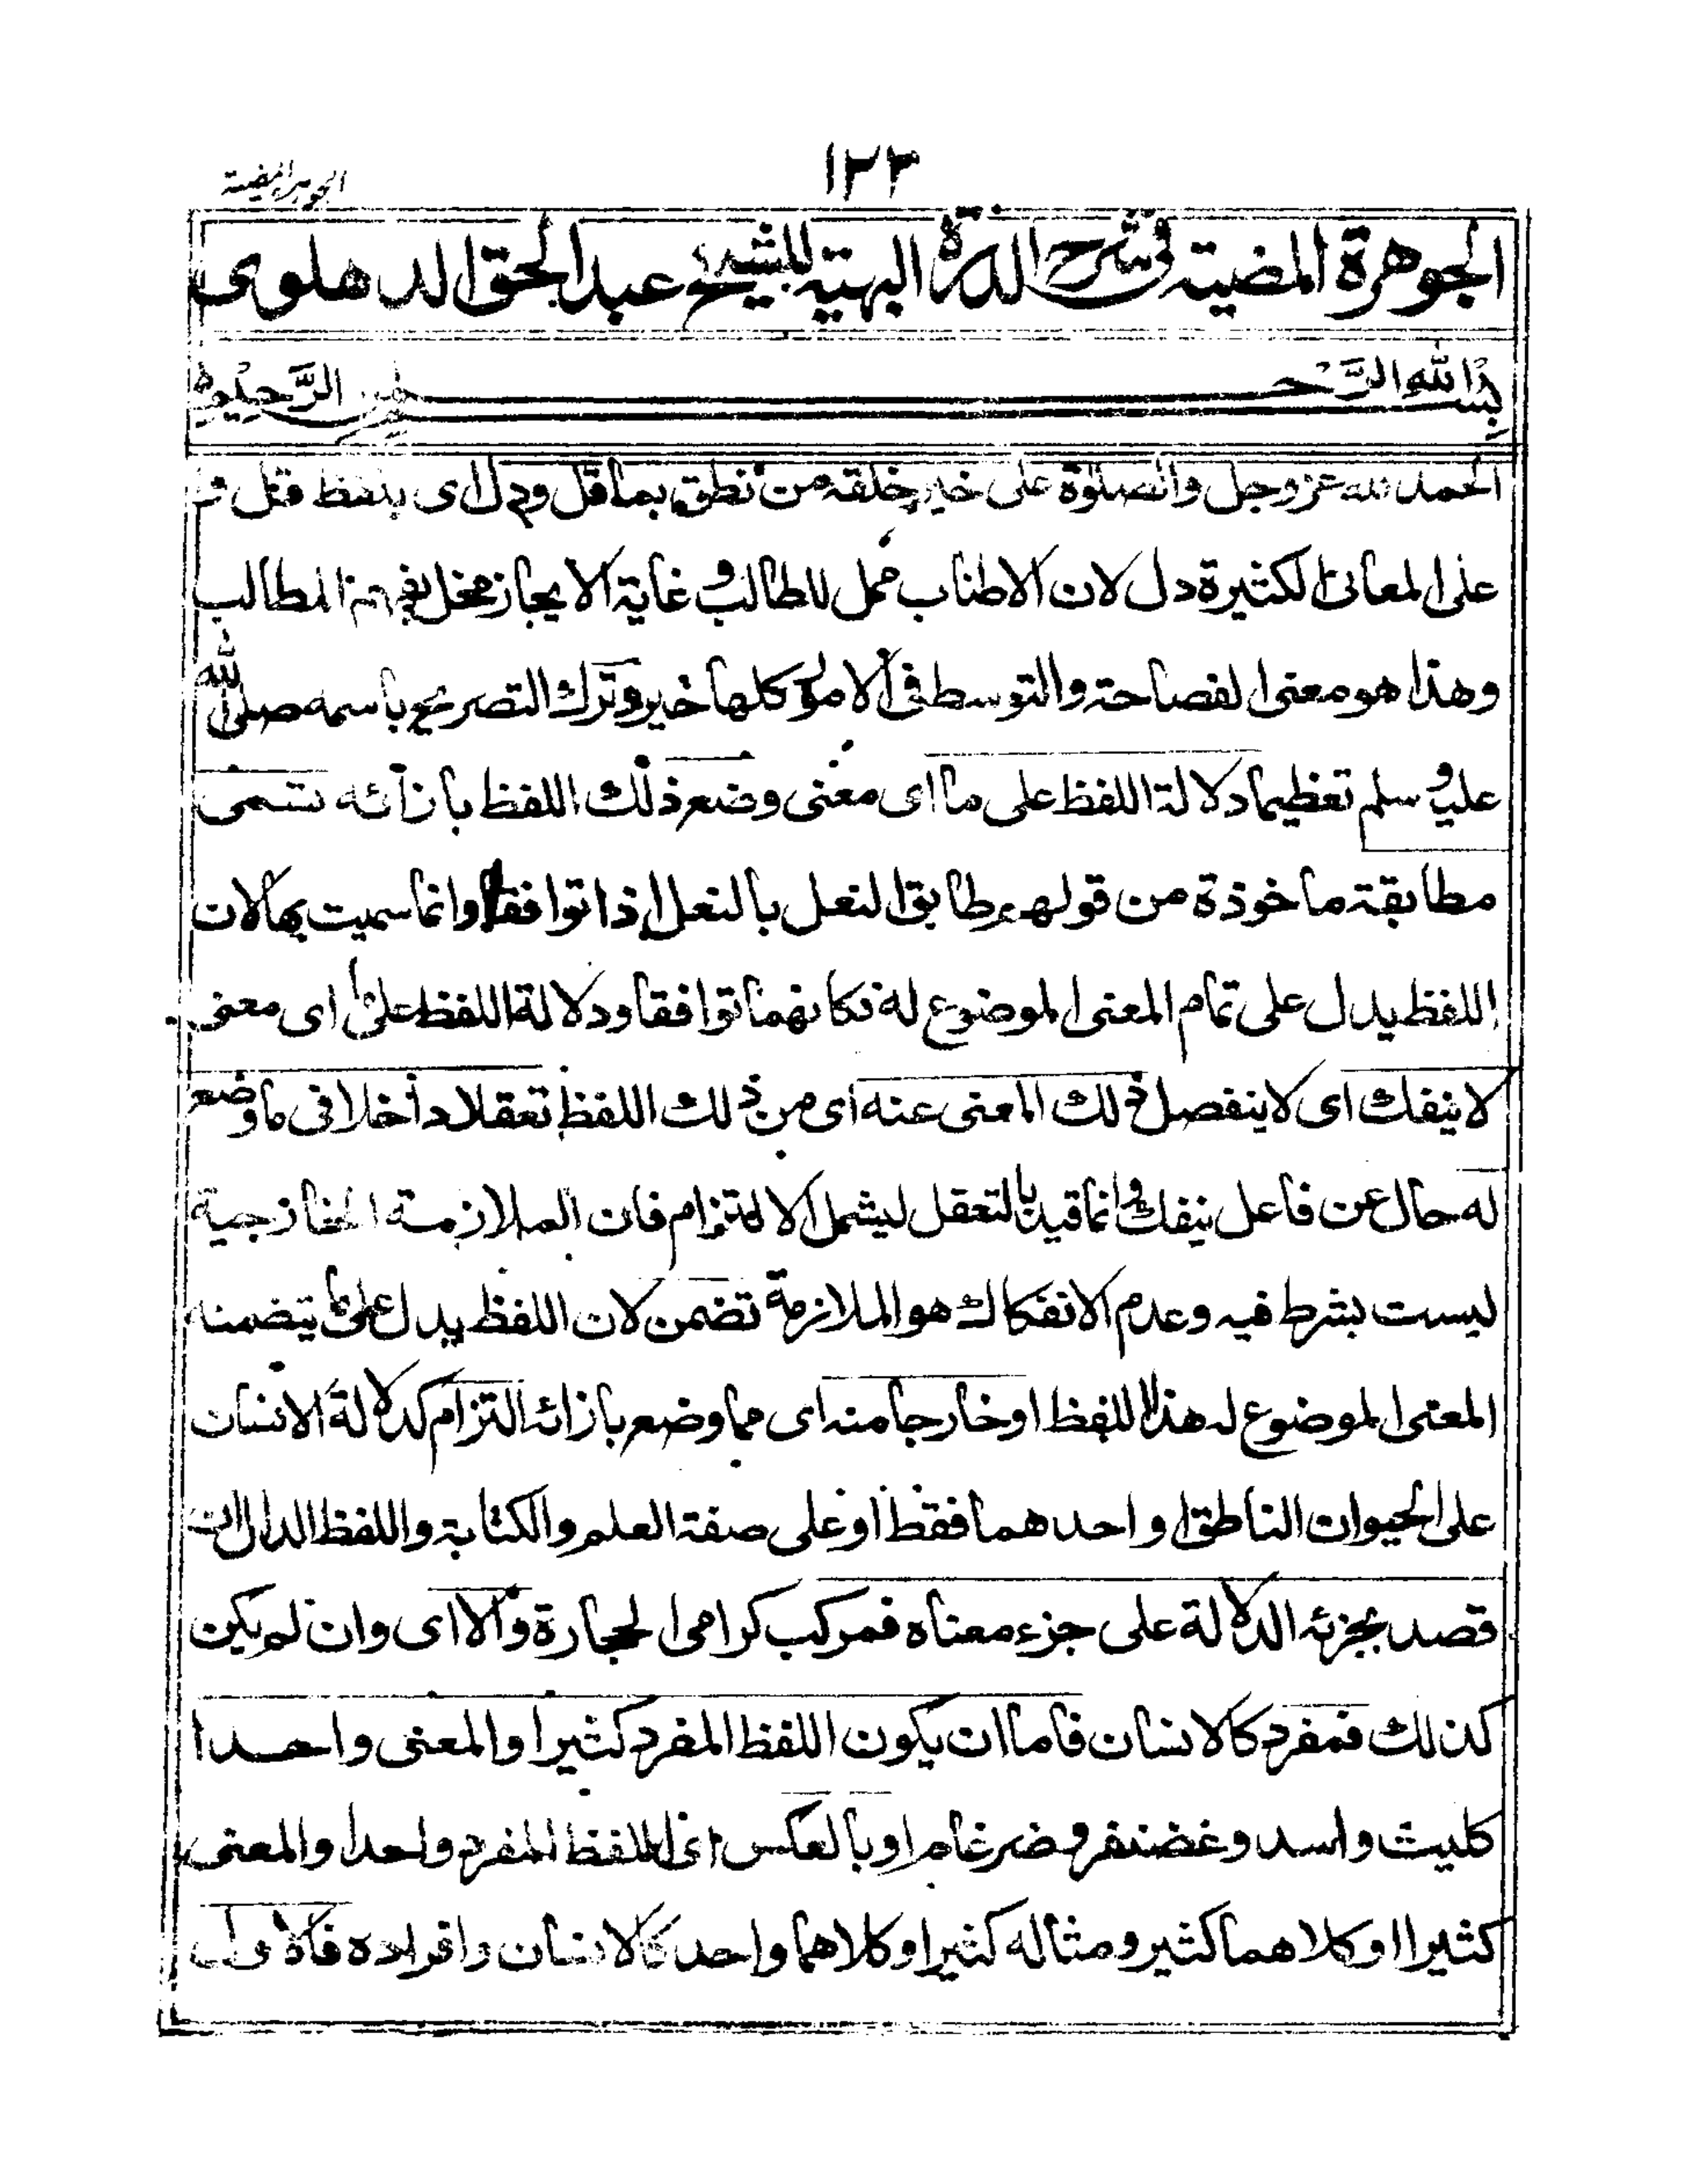 ١٢٣
الجوهرة المضية
الجوهرة المضية في شرح الدرة البهية للشيخ عبد الحق الدهلوى
بسم الله الرحمن الرحيم
الحمد لله عز وجل والصلوة على خير خلقه من نطق بما قل ودل اى بلفظ قل
على المعانى الكثيرة دل لان الاطناب ممل للطالب و غاية الايجاز مخل بفهم المطالب
وهذا هو معنى الفصاحة والتوسط فى الامور كلها خير وترك التصريح باسمه صلى الله
عليه وسلم تعظيما دلالة اللفظ على ما اى معنى وضع ذلك اللفظ بازائه تسمى
مطابقة ماخوذة من قولهم طابق النعل بالنعل اذا توافقا وانما سميت بها لان
اللفظ يدل على تمام المعنى الموضوع له فكانهما توافقا ودلالة اللفظ على ما اى معنى
لا ينفك اى لا ينفصل ذلك المعنى عنه اى من ذلك اللفظ تعقلا داخلا فى ما وضع
له حال عن فاعل ينفك وانما قيد بالتعقل ليشمل الالتزام فان الملازمة الخارجية
ليست بشرط فيه وعدم الانفكاك هو الملازمة تضمن لان اللفظ يدل على ما يتضمنه
المعنى الموضوع له هذا اللفظ او خارجا منه اى مما وضع بازائه التزام كدلالة الانسان
على الحيوان الناطق او احدهما فقط او على صفة العلم والكتابة واللفظ الدال ان
قصد بجزئه الدلالة على جزء معناه فمركب كرامى الحجارة والا اى وان لم يكن
كذلك فمفرد كالانسان فاما ان يكون اللفظ المفرد كثيرا والمعنى واحدا
كليث واسد وغضنفر وضرغام او بالعكس اى اللفظ المفرد واحدا والمعنى
كثيرا او كلاهما كثير ومثاله كثير او كلاهما واحد كالانسان وافراده فالاول